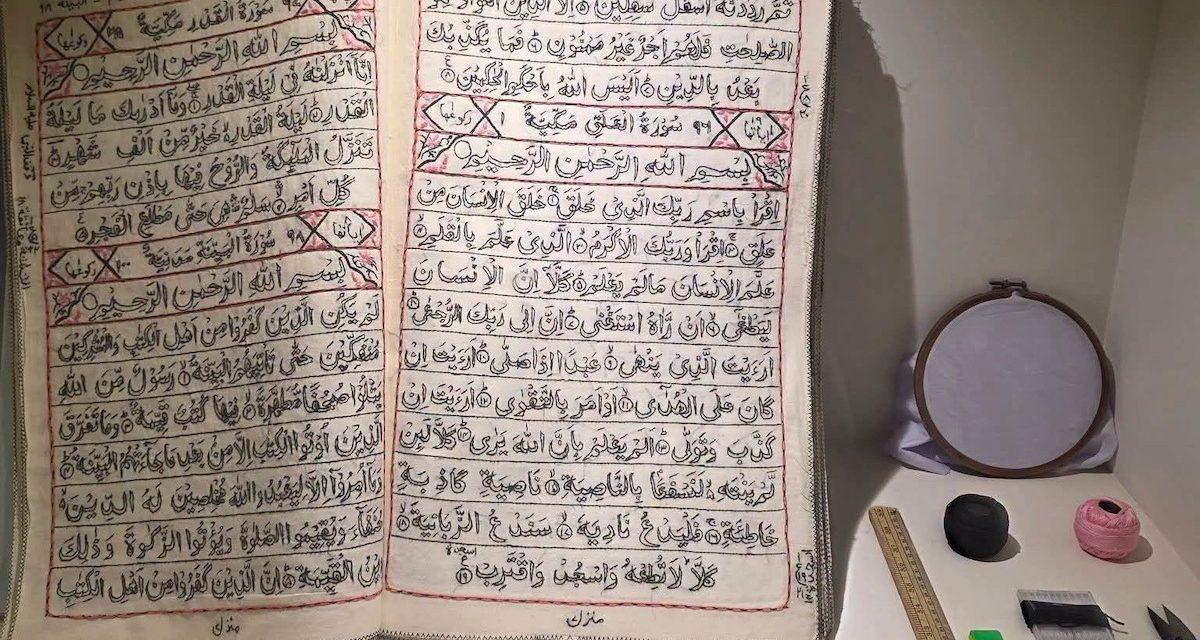 ثُمَّ رَدَدْنٰهُ اَسْفَلَ سٰفِلِيْنَ ۝ اِلَّا الَّذِيْنَ اٰمَنُوْا وَعَمِلُوا
الصّٰلِحٰتِ فَلَهُمْ اَجْرٌ غَيْرُ مَمْنُوْنٍ ۝۶ فَمَا يُكَذِّبُكَ
بَعْدُ بِالدِّيْنِ ۝۷ اَلَيْسَ اللّٰهُ بِاَحْكَمِ الْحٰكِمِيْنَ ۝۸
اٰيَاتُهَا ۹۶ سُوْرَةُ الْعَلَقِ مَكِّيَّةٌ ۱ رُكُوْعُهَا
بِسْمِ اللّٰهِ الرَّحْمٰنِ الرَّحِيْمِ
اِقْرَاْ بِاسْمِ رَبِّكَ الَّذِيْ خَلَقَ ۝۱ خَلَقَ الْاِنْسَانَ مِنْ
عَلَقٍ ۝۲ اِقْرَاْ وَرَبُّكَ الْاَكْرَمُ ۝۳ الَّذِيْ عَلَّمَ بِالْقَلَمِ ۝۴
عَلَّمَ الْاِنْسَانَ مَا لَمْ يَعْلَمْ ۝۵ كَلَّا اِنَّ الْاِنْسَانَ
لَيَطْغٰى ۝۶ اَنْ رَّاٰهُ اسْتَغْنٰى ۝۷ اِنَّ اِلٰى رَبِّكَ الرُّجْعٰى ۝۸
اَرَءَيْتَ الَّذِيْ يَنْهٰى ۝۹ عَبْدًا اِذَا صَلّٰى ۝۱۰ اَرَءَيْتَ اِنْ
كَانَ عَلَى الْهُدٰى ۝۱۱ اَوْ اَمَرَ بِالتَّقْوٰى ۝۱۲ اَرَءَيْتَ اِنْ
كَذَّبَ وَتَوَلّٰى ۝۱۳ اَلَمْ يَعْلَمْ بِاَنَّ اللّٰهَ يَرٰى ۝۱۴ كَلَّا لَئِنْ
لَّمْ يَنْتَهِ لَنَسْفَعًا بِالنَّاصِيَةِ ۝۱۵ نَاصِيَةٍ كَاذِبَةٍ
خَاطِئَةٍ ۝۱۶ فَلْيَدْعُ نَادِيَهٗ ۝۱۷ سَنَدْعُ الزَّبَانِيَةَ ۝۱۸
كَلَّا لَا تُطِعْهُ وَاسْجُدْ وَاقْتَرِبْ ۝۱۹
منزل
سُوْرَةُ الْقَدْرِ مَكِّيَّةٌ ۲۵ رُكُوْعُهَا
بِسْمِ اللّٰهِ الرَّحْمٰنِ الرَّحِيْمِ
اِنَّا اَنْزَلْنٰهُ فِيْ لَيْلَةِ الْقَدْرِ ۝۱ وَمَا اَدْرٰىكَ مَا لَيْلَةُ
الْقَدْرِ ۝۲ لَيْلَةُ الْقَدْرِ خَيْرٌ مِّنْ اَلْفِ شَهْرٍ ۝۳
تَنَزَّلُ الْمَلٰٓئِكَةُ وَالرُّوْحُ فِيْهَا بِاِذْنِ رَبِّهِمْ مِّنْ
كُلِّ اَمْرٍ ۝۴ سَلٰمٌ هِيَ حَتّٰى مَطْلَعِ الْفَجْرِ ۝۵
اٰيَاتُهَا ۹۸ سُوْرَةُ الْبَيِّنَةِ مَدَنِيَّةٌ ۱۰۰ رُكُوْعُهَا
بِسْمِ اللّٰهِ الرَّحْمٰنِ الرَّحِيْمِ
لَمْ يَكُنِ الَّذِيْنَ كَفَرُوْا مِنْ اَهْلِ الْكِتٰبِ وَالْمُشْرِكِيْنَ
مُنْفَكِّيْنَ حَتّٰى تَاْتِيَهُمُ الْبَيِّنَةُ ۝۱ رَسُوْلٌ مِّنَ اللّٰهِ
يَتْلُوْا صُحُفًا مُّطَهَّرَةً ۝۲ فِيْهَا كُتُبٌ قَيِّمَةٌ ۝۳ وَمَا تَفَرَّقَ
الَّذِيْنَ اُوْتُوا الْكِتٰبَ اِلَّا مِنْ بَعْدِ مَا جَآءَتْهُمُ الْبَيِّنَةُ ۝۴
وَمَا اُمِرُوْا اِلَّا لِيَعْبُدُوا اللّٰهَ مُخْلِصِيْنَ لَهُ الدِّيْنَ
حُنَفَآءَ وَيُقِيْمُوا الصَّلٰوةَ وَيُؤْتُوا الزَّكٰوةَ وَذٰلِكَ
دِيْنُ الْقَيِّمَةِ ۝۵ اِنَّ الَّذِيْنَ كَفَرُوْا مِنْ اَهْلِ الْكِتٰبِ
منزل